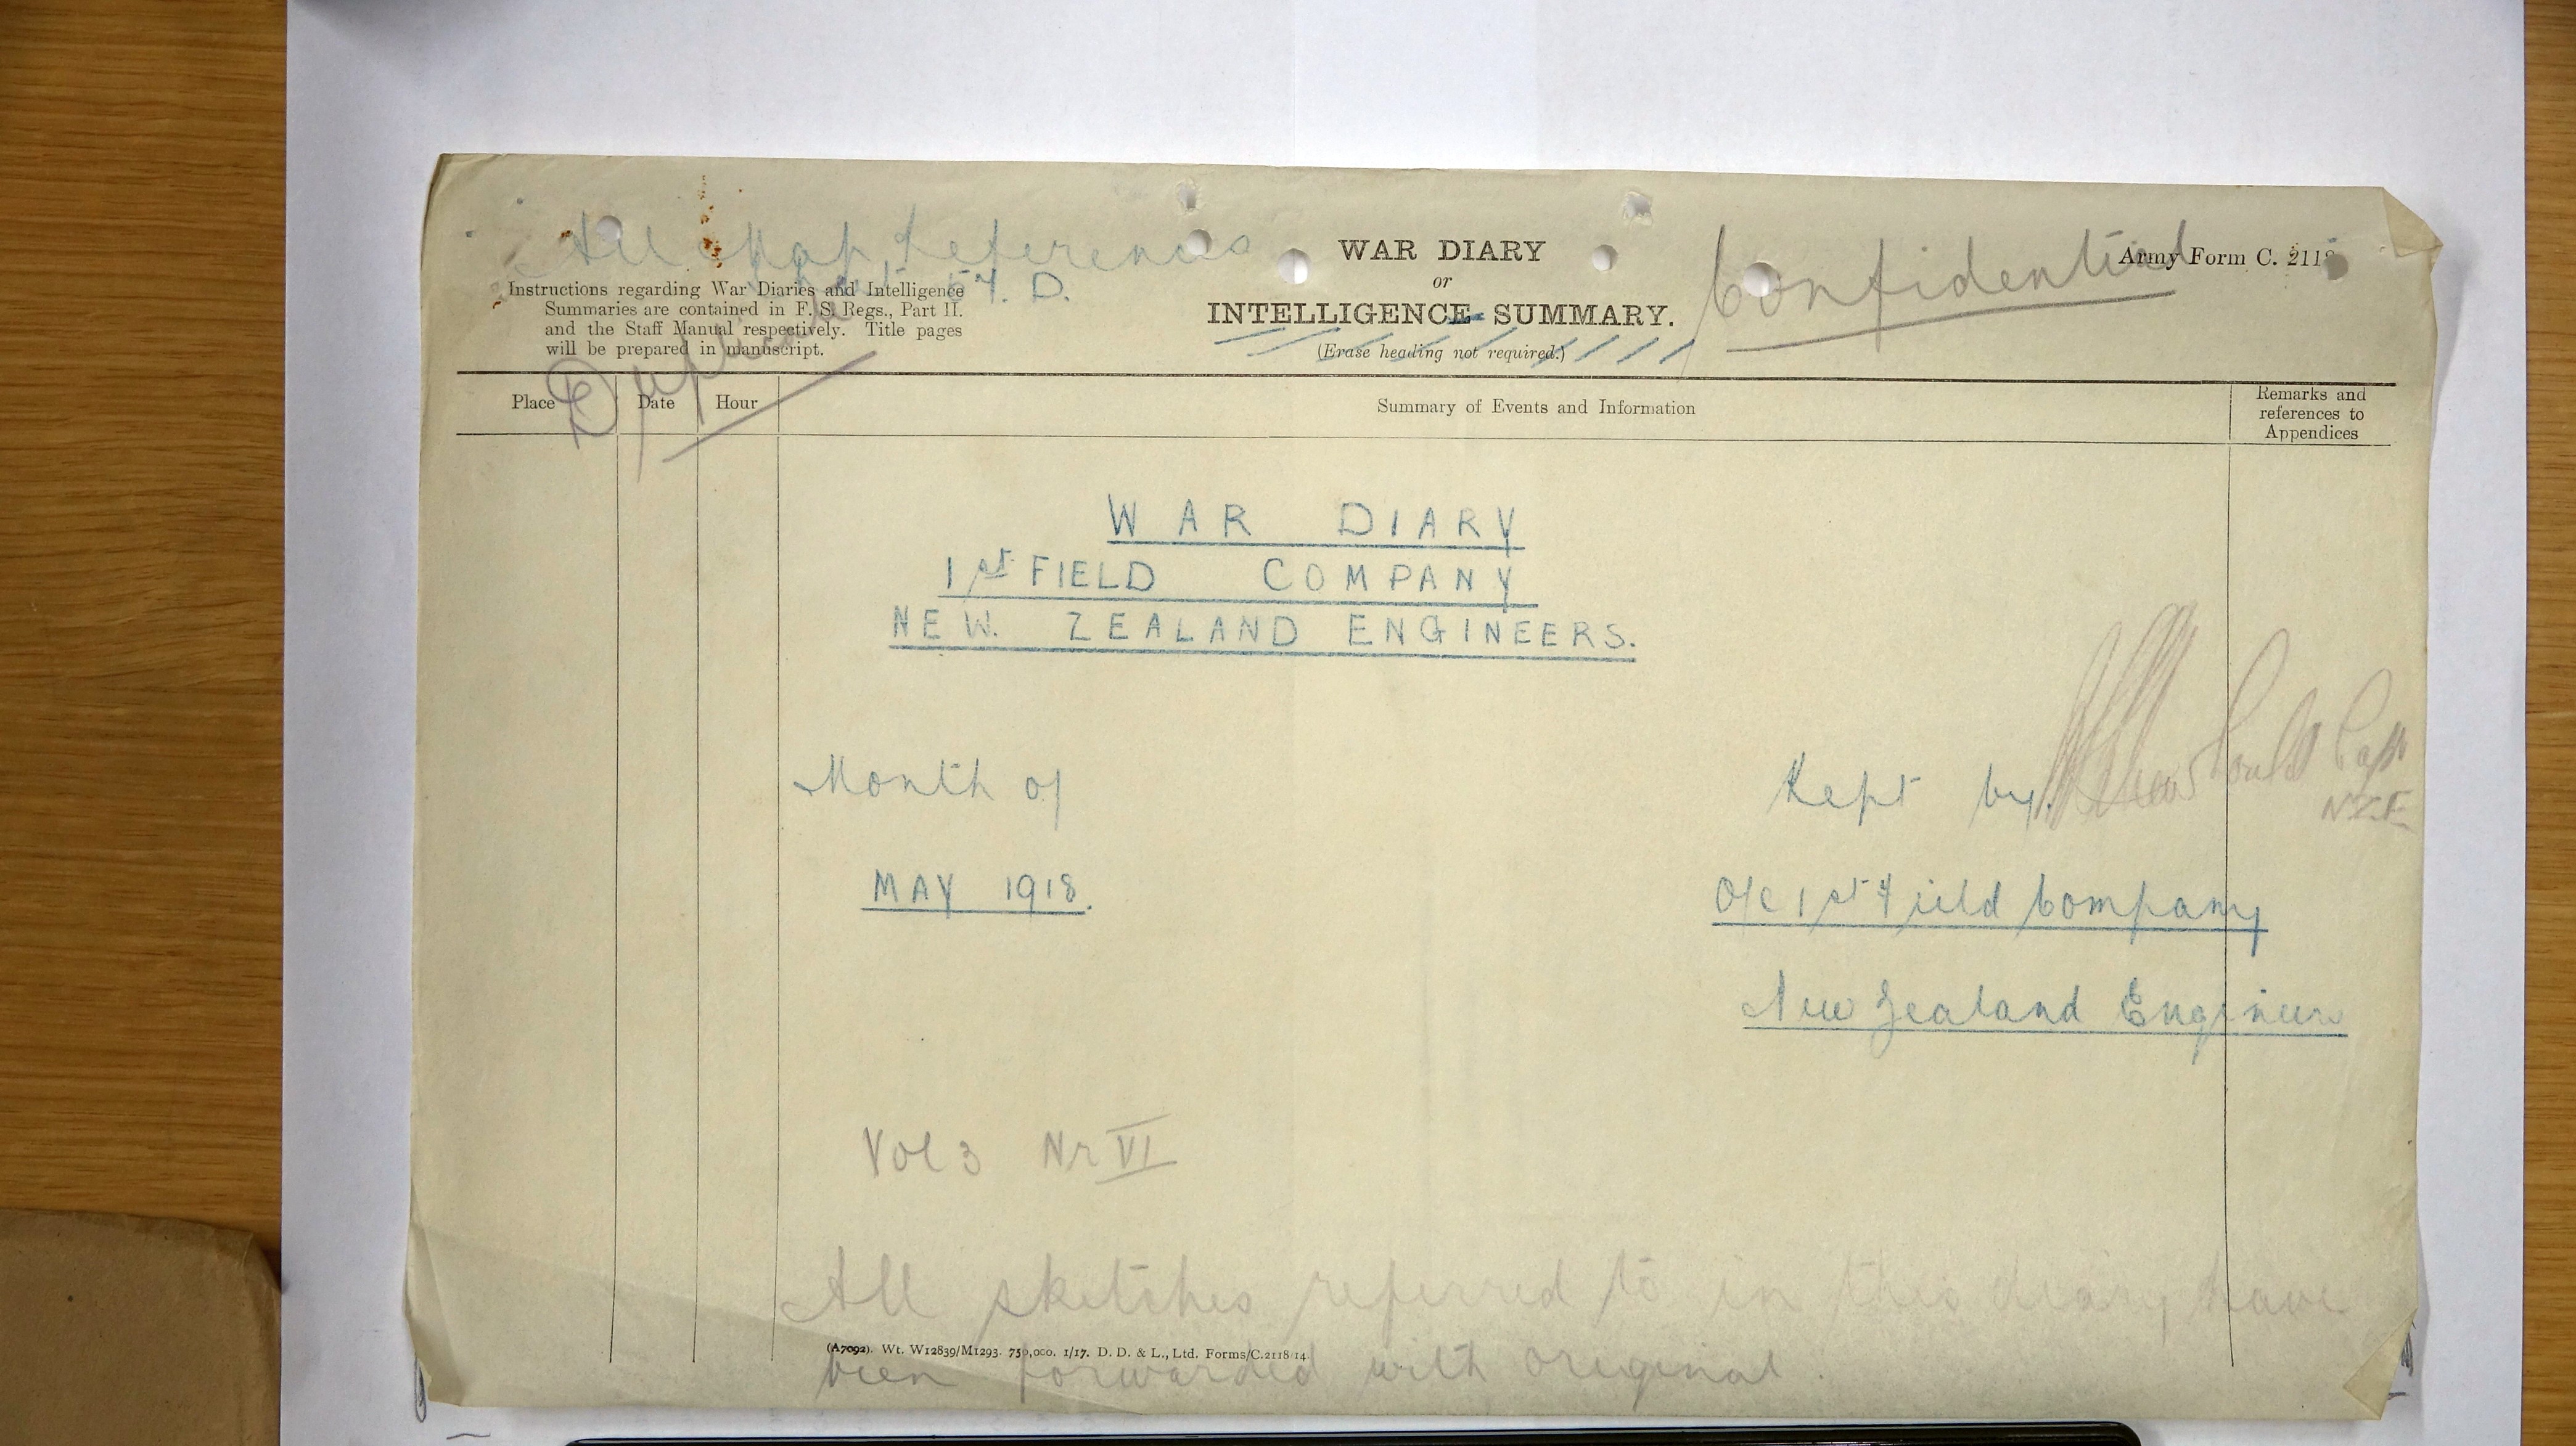 All Map References
57. D.
WAR DIARY
or
INTELLIGENCE SUMMARY.
(Erase heading not required.)
Confidential
Army Form C. 2118
Instructions regarding War Diaries and Intelligence
Summaries are contained in F. S. Regs., Part II.
and the Staff Manual respectively. Title pages
will be prepared in manuscript.
Duplicate
Place
Date
Hour
Summary of Events and Information
Remarks and
references to
Appendices
WAR DIARY
1st FIELD COMPANY
NEW. ZEALAND ENGINEERS.
Month of
MAY 1918.
Kept by.
N.Z.E.
O/C 1st Field Company
New Zealand Engineers
Vol 3 Nr VI
All sketches referred to in this diary have
been forwarded with original.
(A7092). Wt. W12839/M1293. 750,000. 1/17. D. D. & L., Ltd. Forms/C.2118/14.